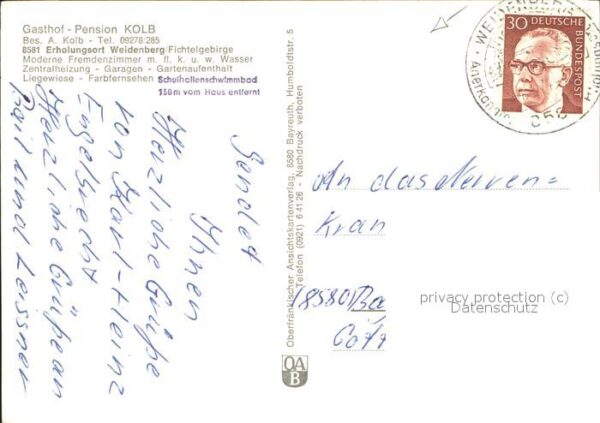 Gasthof - Pension KOLB
Bes. A. Kolb - Tel. 09278/285
8581 Erholungsort Weidenberg/Fichtelgebirge
Moderne Fremdenzimmer m. fl. k. u. w. Wasser
Zentralheizung - Garagen - Gartenaufenthalt
Liegewiese - Farbfernsehen
Schulhallenschwimmbad
150 m vom Haus entfernt
Sendet
Ihnen
Herzliche Grüße
von Karl-Heinz
Engelbrecht
Herzliche Grüße an
Leissner
Oberfränkischer Ansichtskartenverlag, 8580 Bayreuth, Humboldtstr. 5
Telefon (0921) 6 41 26 - Nachdruck verboten
OA
B
30 DEUTSCHE
BUNDESPOST
WEIDENBERG
858
An das Nerven=
Kran
8580 Ba
privacy protection (c)
Datenschutz